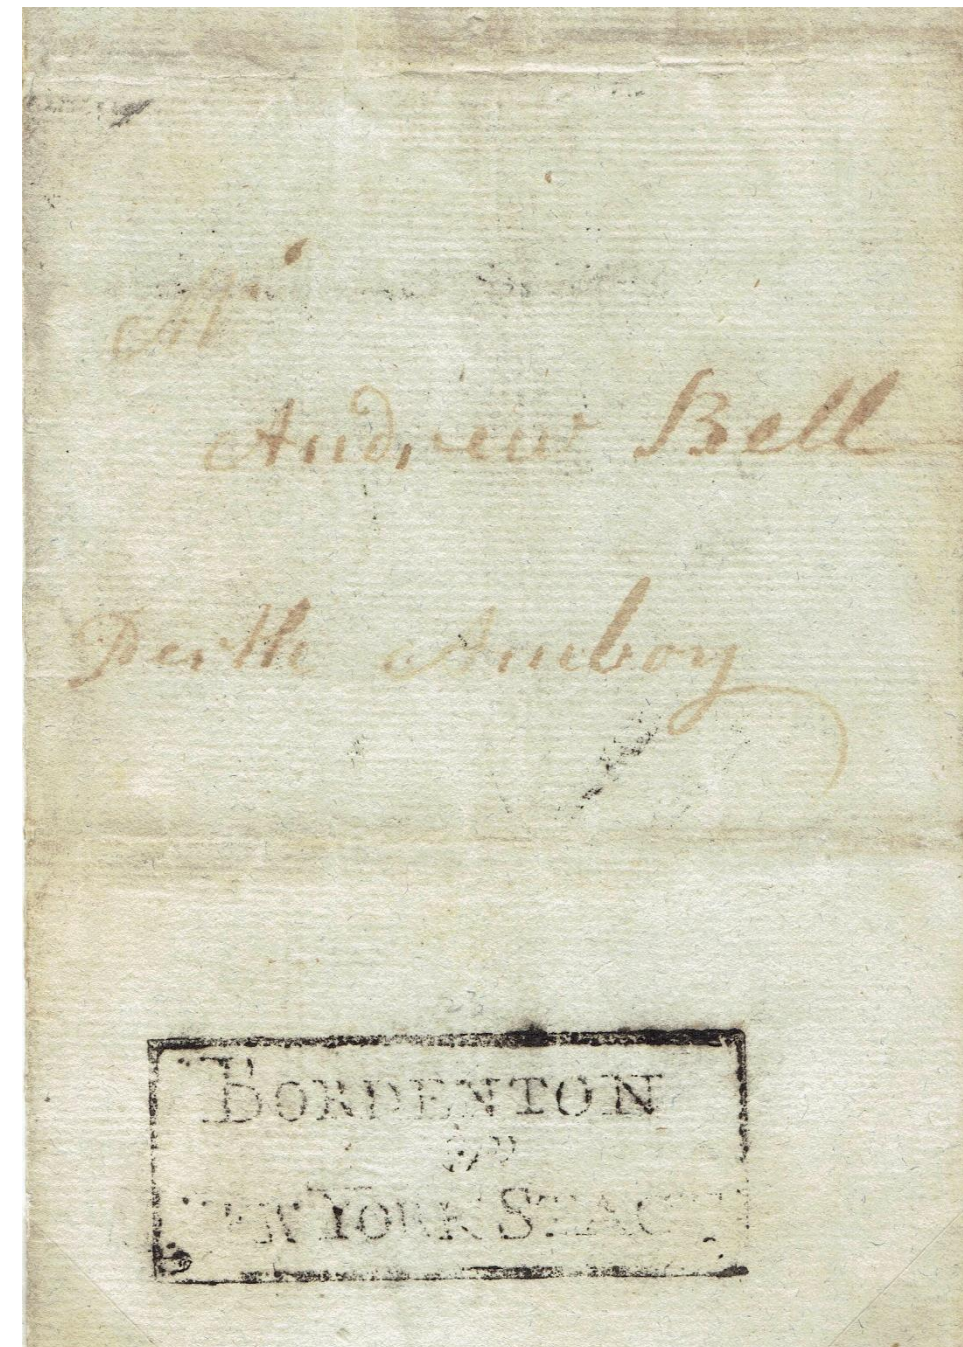 Mr
Andrew Bell
Perth Amboy
23
BORDENTON
NEW YORK STAGE